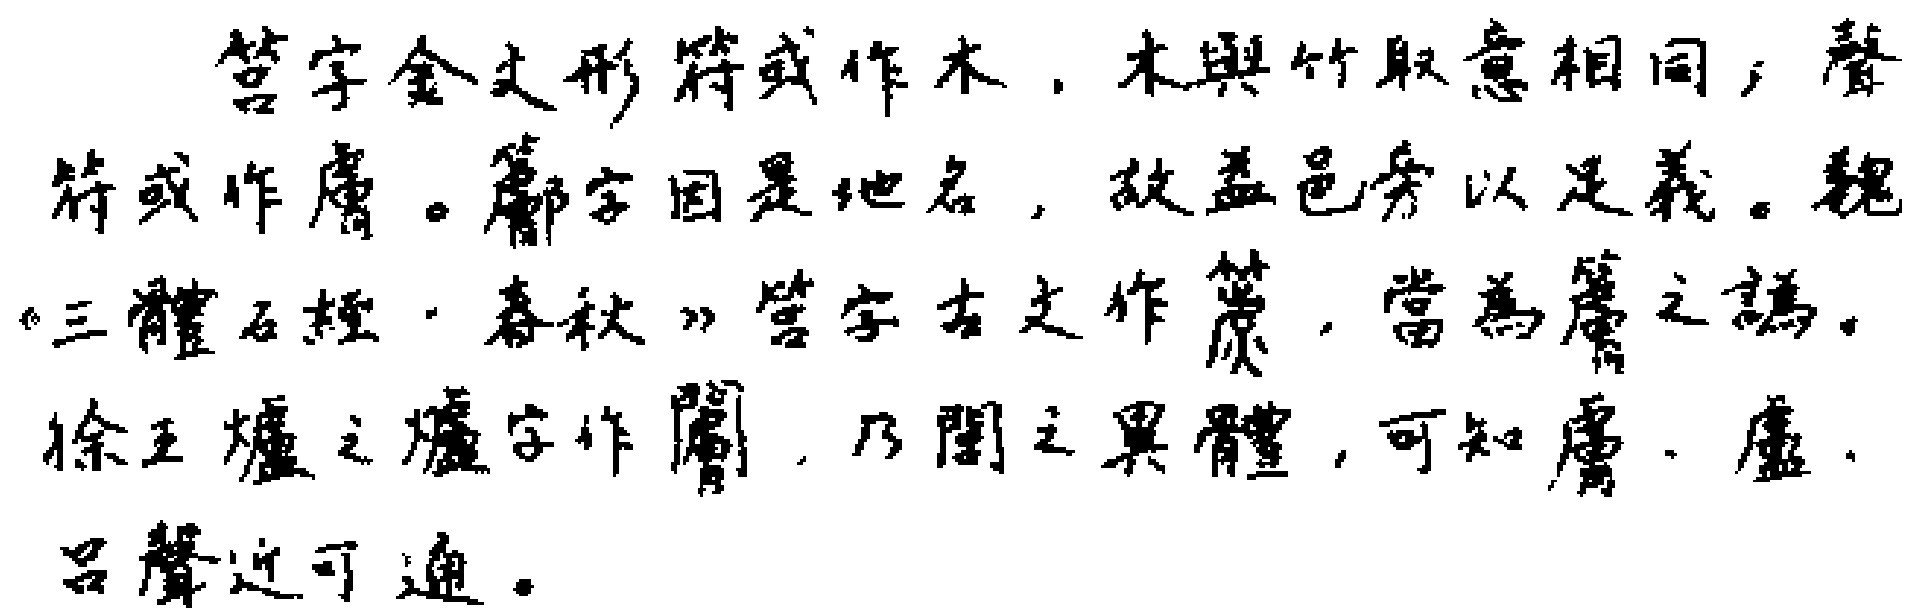 筥字金文形符或作木，木與竹取意相同；聲
符或作膚。字因是地名，故益邑旁以足義。魏
《三體石經·春秋》筥字古文作，當為籚之譌。
徐王爐之爐字作，乃閭之異體，可知膚、盧、
呂聲近可通。